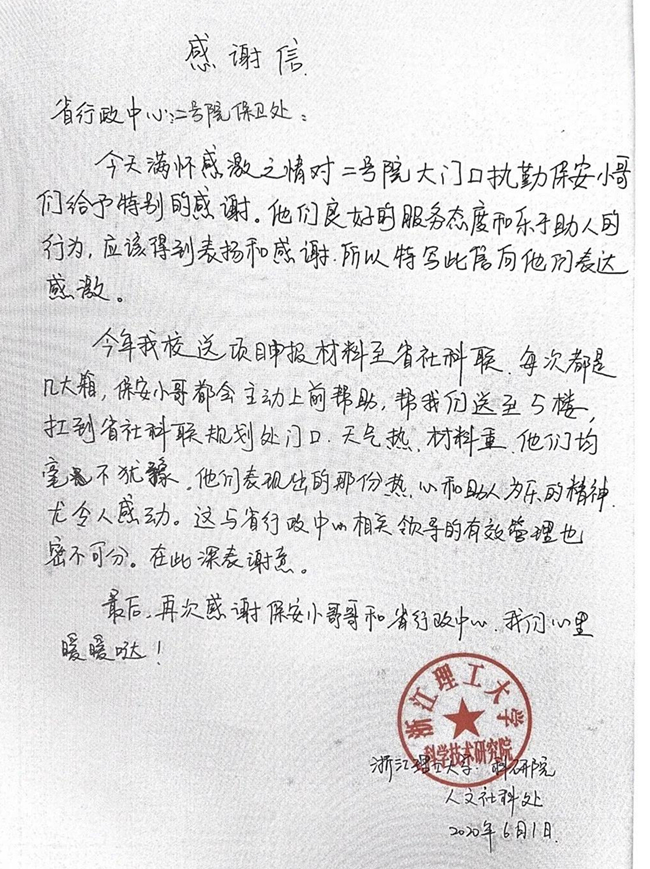 感谢信.
省行政中心:二号院保卫处:
今天满怀感激之情对二号院大门口执勤保安小哥
们给予特别的感谢。他们良好的服务态度和乐于助人的
行为,应该得到表扬和感谢.所以特写此信向他们表达
感激。
今年我校送项目申报材料至省社科联.每次都是
几大箱,保安小哥都会主动上前帮助,帮我们送至5楼,
扛到省社科联规划处门口.天气热、材料重.他们均
毫不犹豫.他们表现出的那份热心和助人为乐的精神.
尤令人感动。这与省行政中心相关领导的有效管理也
密不可分。在此深表谢意。
最后,再次感谢保安小哥哥和省行政中心.我们心里
暖暖哒!
浙江理工大学
科学技术研究院
浙江理工大学·科研院
人文社科处
2020年6月1日.